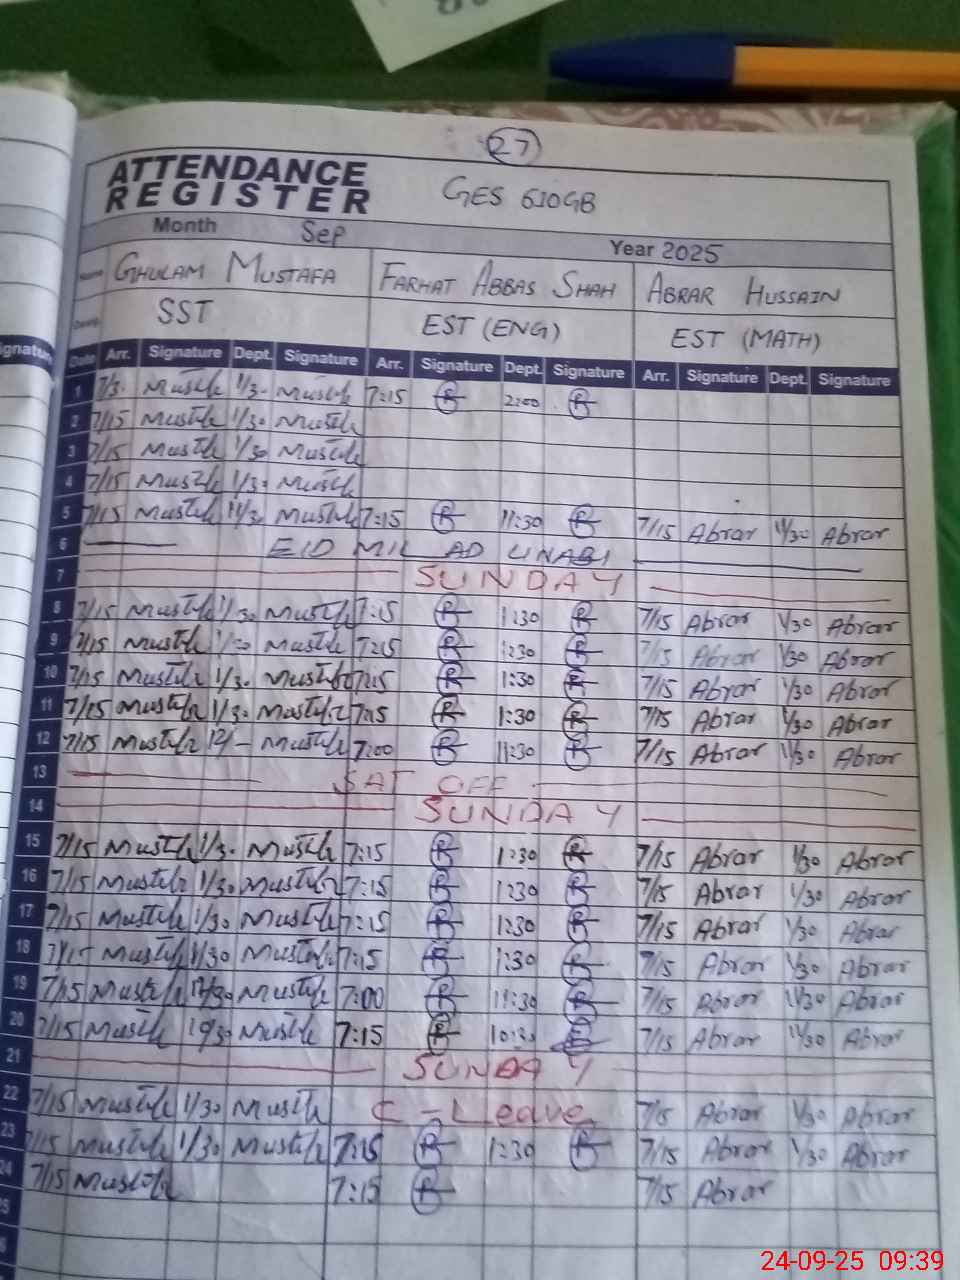 27
ATTENDANCE
REGISTER GES 610GB
Month Sep Year 2025
Name GHULAM MUSTAFA FARHAT ABBAS SHAH ABRAR HUSSAIN
SST EST (ENG) EST (MATH)
Date Arr. Signature Dept. Signature Arr. Signature Dept. Signature Arr. Signature Dept. Signature
1 7/3. 1/3. 7:15 R 2:00 R
2 7/15 1/30
3 7/15 1/30
4 7/15 1/3.
5 7/15 11/3. 7:15 R 11:30 R 7/15 Abrar 11/30 Abrar
6 EID MIL AD UNABI
7 SUNDAY
8 7/15 1/30 7:15 R 1:30 R 7/15 Abrar 1/30 Abrar
9 7/15 1/30 7:15 R 1:30 R 7/15 Abrar 1/30 Abrar
10 7/15 1/3. 7:15 R 1:30 R 7/15 Abrar 1/30 Abrar
11 7/15 1/3. 7:15 R 1:30 R 7/15 Abrar 1/30 Abrar
12 7/15 12/- 7:00 R 11:30 R 7/15 Abrar 11/30 Abrar
13 SAT OFF
14 SUNDAY
15 7/15 1/3. 7:15 R 1:30 R 7/15 Abrar 1/30 Abrar
16 7/15 1/30 7:15 R 1:30 R 7/15 Abrar 1/30 Abrar
17 7/15 1/30 7:15 R 1:30 R 7/15 Abrar 1/30 Abrar
18 7/15 1/30 7:15 R 1:30 R 7/15 Abrar 1/30 Abrar
19 7/15 7:00 R 11:30 R 7/15 Abrar 11/30 Abrar
20 7/15 10/30 7:15 R 10:30 7/15 Abrar 11/30 Abrar
21 SUNDAY
22 7/15 1/30 C-Leave 7/15 Abrar 1/30 Abrar
23 7/15 1/30 7:15 R 1:30 R 7/15 Abrar 1/30 Abrar
24 7/15 7:15 R 7/15 Abrar
24-09-25 09:39